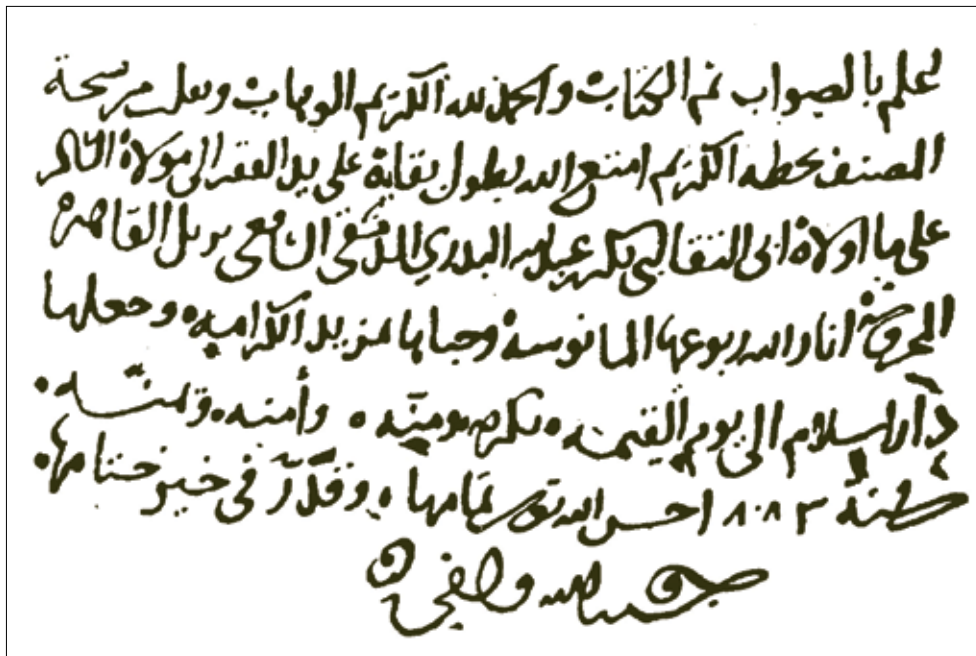 اعلم بالصواب تم الكتاب والحمد لله الكريم الوهاب ونقلت من نسخة
المصنف بخطه الكريم امتع الله بطول بقائه على يد الفقير الى مولاه الشاكر
على ما اولاه ابى التقا ابى بكر عبد الله البدري الدمشقى الشافعى نزيل القاهرة
المحروسة انار الله ربوعها المانوسة وحباها بمزيد الكراميه وجعلها
دار اسلام الى يوم القيمه بكرمه ومنّه وأمنه ويمنه
سنة احسن الله تعالى تمامها وقدّر فى خير ختامها
حسبنا الله وكفى